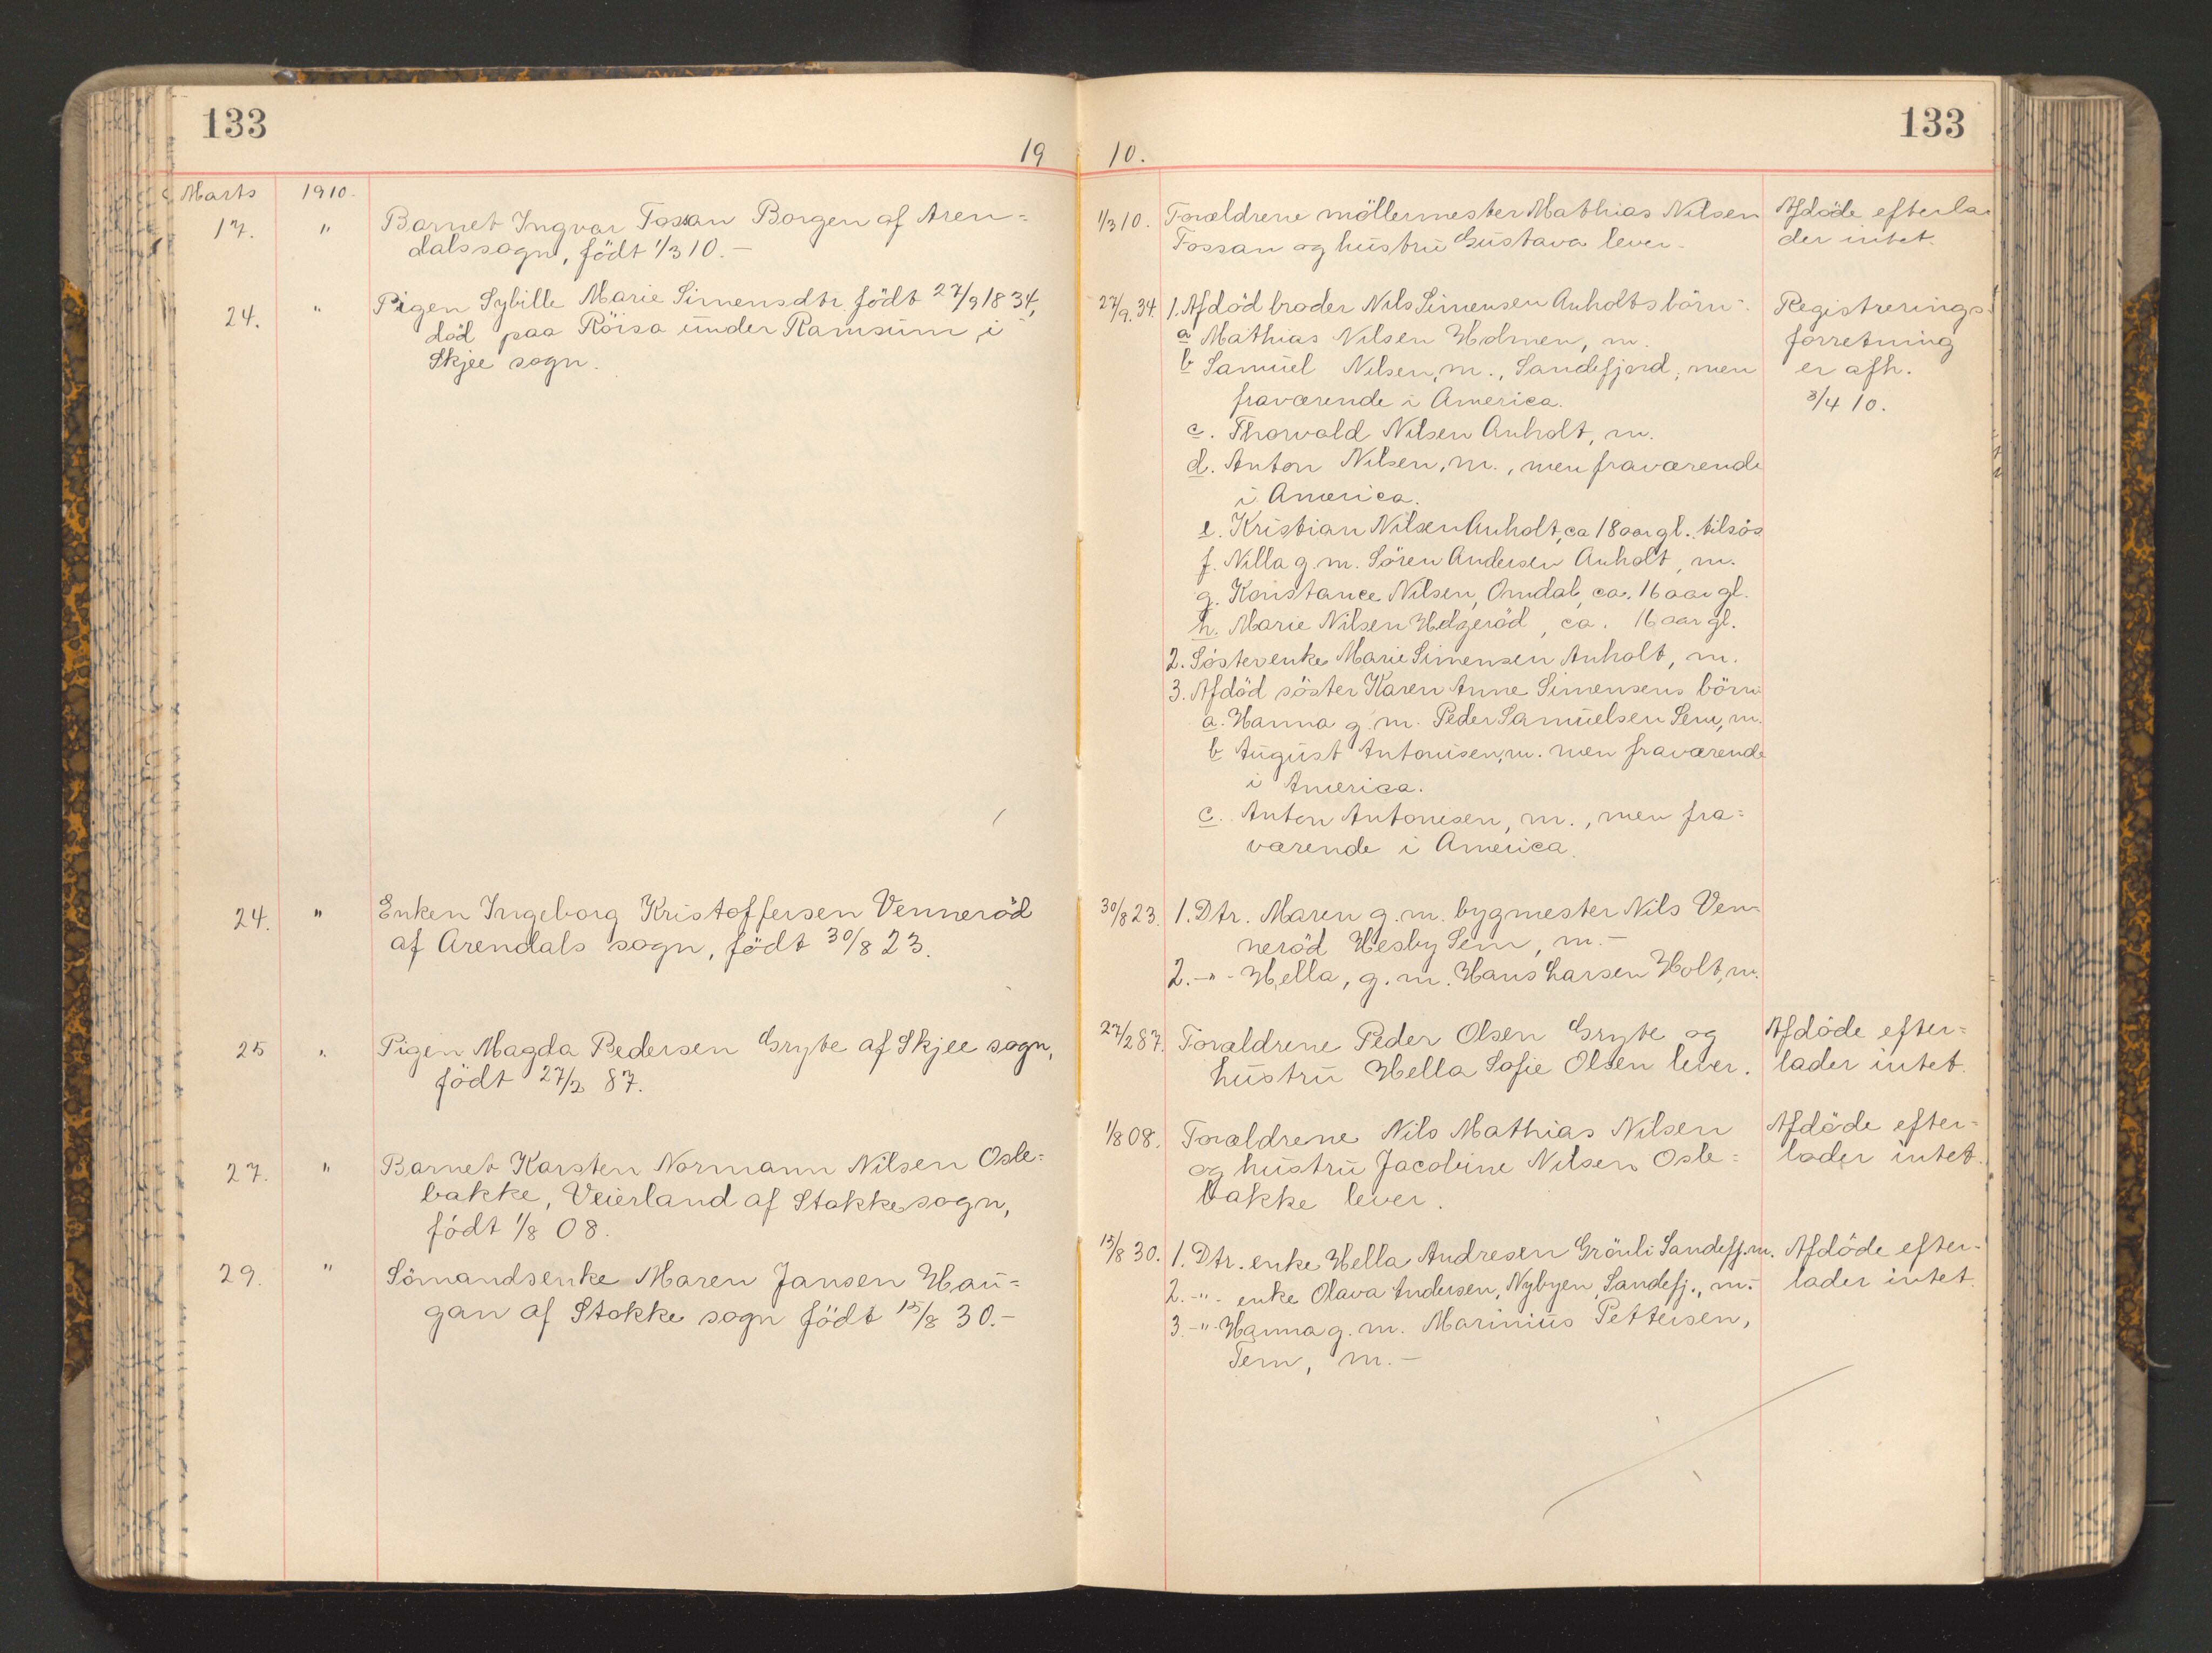 133
133
19 10.
Marts 1910.
17. " Barnet Ingvar Fossan Borgen af Aren=
dals sogn, födt 1/3 10.-
1/3 10. Forældrene möllermester Mathias Nilsen
Fossan og hustru Gustava lever.
Afdöde efterla=
der intet.
24. " Pigen Sybille Marie Simensdtr. födt 27/9 1834,
död paa Röisa under Ramsum i
Skjee sogn.
27/9 34. 1. Afdöd broder Nils Simensen Anholts börn:
a Mathias Nilsen Holmen, m.
b Samuel Nilsen, m., Sandefjord, men
fraværende i America.
c. Thorvald Nilsen Anholt, m.
d. Anton Nilsen, m., men fraværende
i America.
e. Kristian Nilsen Anholt, ca 18 aar gl. tilsös
f. Nilla g. m. Sören Andersen Anholt, m.
g. Konstance Nilsen, Omdal, ca. 16 aar gl.
h. Marie Nilsen Helgeröd, ca. 16 aar gl.
2. Söster enke Marie Simensen Anholt, m.
3. Afdöd söster Karen Anne Simensens börn:
a. Hanna g. m. Peder Samuelsen Sem, m.
b August Antonisen, m. men fraværende
i America.
c. Anton Antonisen, m., men fra=
værende i America.
Registrerings=
forretning
er afh.
3/4 10.
24. " Enken Ingeborg Kristoffersen Venneröd
af Arendals sogn, födt 30/8 23.
30/8 23. 1. Dtr. Maren g. m. bygmester Nils Ven=
neröd Hesby Sem, m.-
2. -"- Hella, g. m. Hans Larsen Holt, m.
25 " Pigen Magda Pedersen Gryte af Skjee sogn,
födt 27/2 87.
27/2 87. Forældrene Peder Olsen Gryte og
hustru Hella Sofie Olsen lever.
Afdöde efter=
lader intet.
27. " Barnet Karsten Normann Nilsen Osle=
bakke, Veierland af Stokke sogn,
födt 1/8 08.
1/8 08. Forældrene Nils Mathias Nilsen
og hustru Jacobine Nilsen Osle=
bakke lever.
Afdöde efter=
lader intet.
29. " Sömandsenke Maren Jansen Hau=
gan af Stokke sogn födt 15/8 30.-
15/8 30. 1. Dtr. enke Hella Andresen Grönli Sandefj. m.
2. -"- enke Olava Andersen, Nybyen, Sandefj., m.-
3. -"- Hanna g. m. Marinius Pettersen,
Tem, m.-
Afdöde efter=
lader intet.